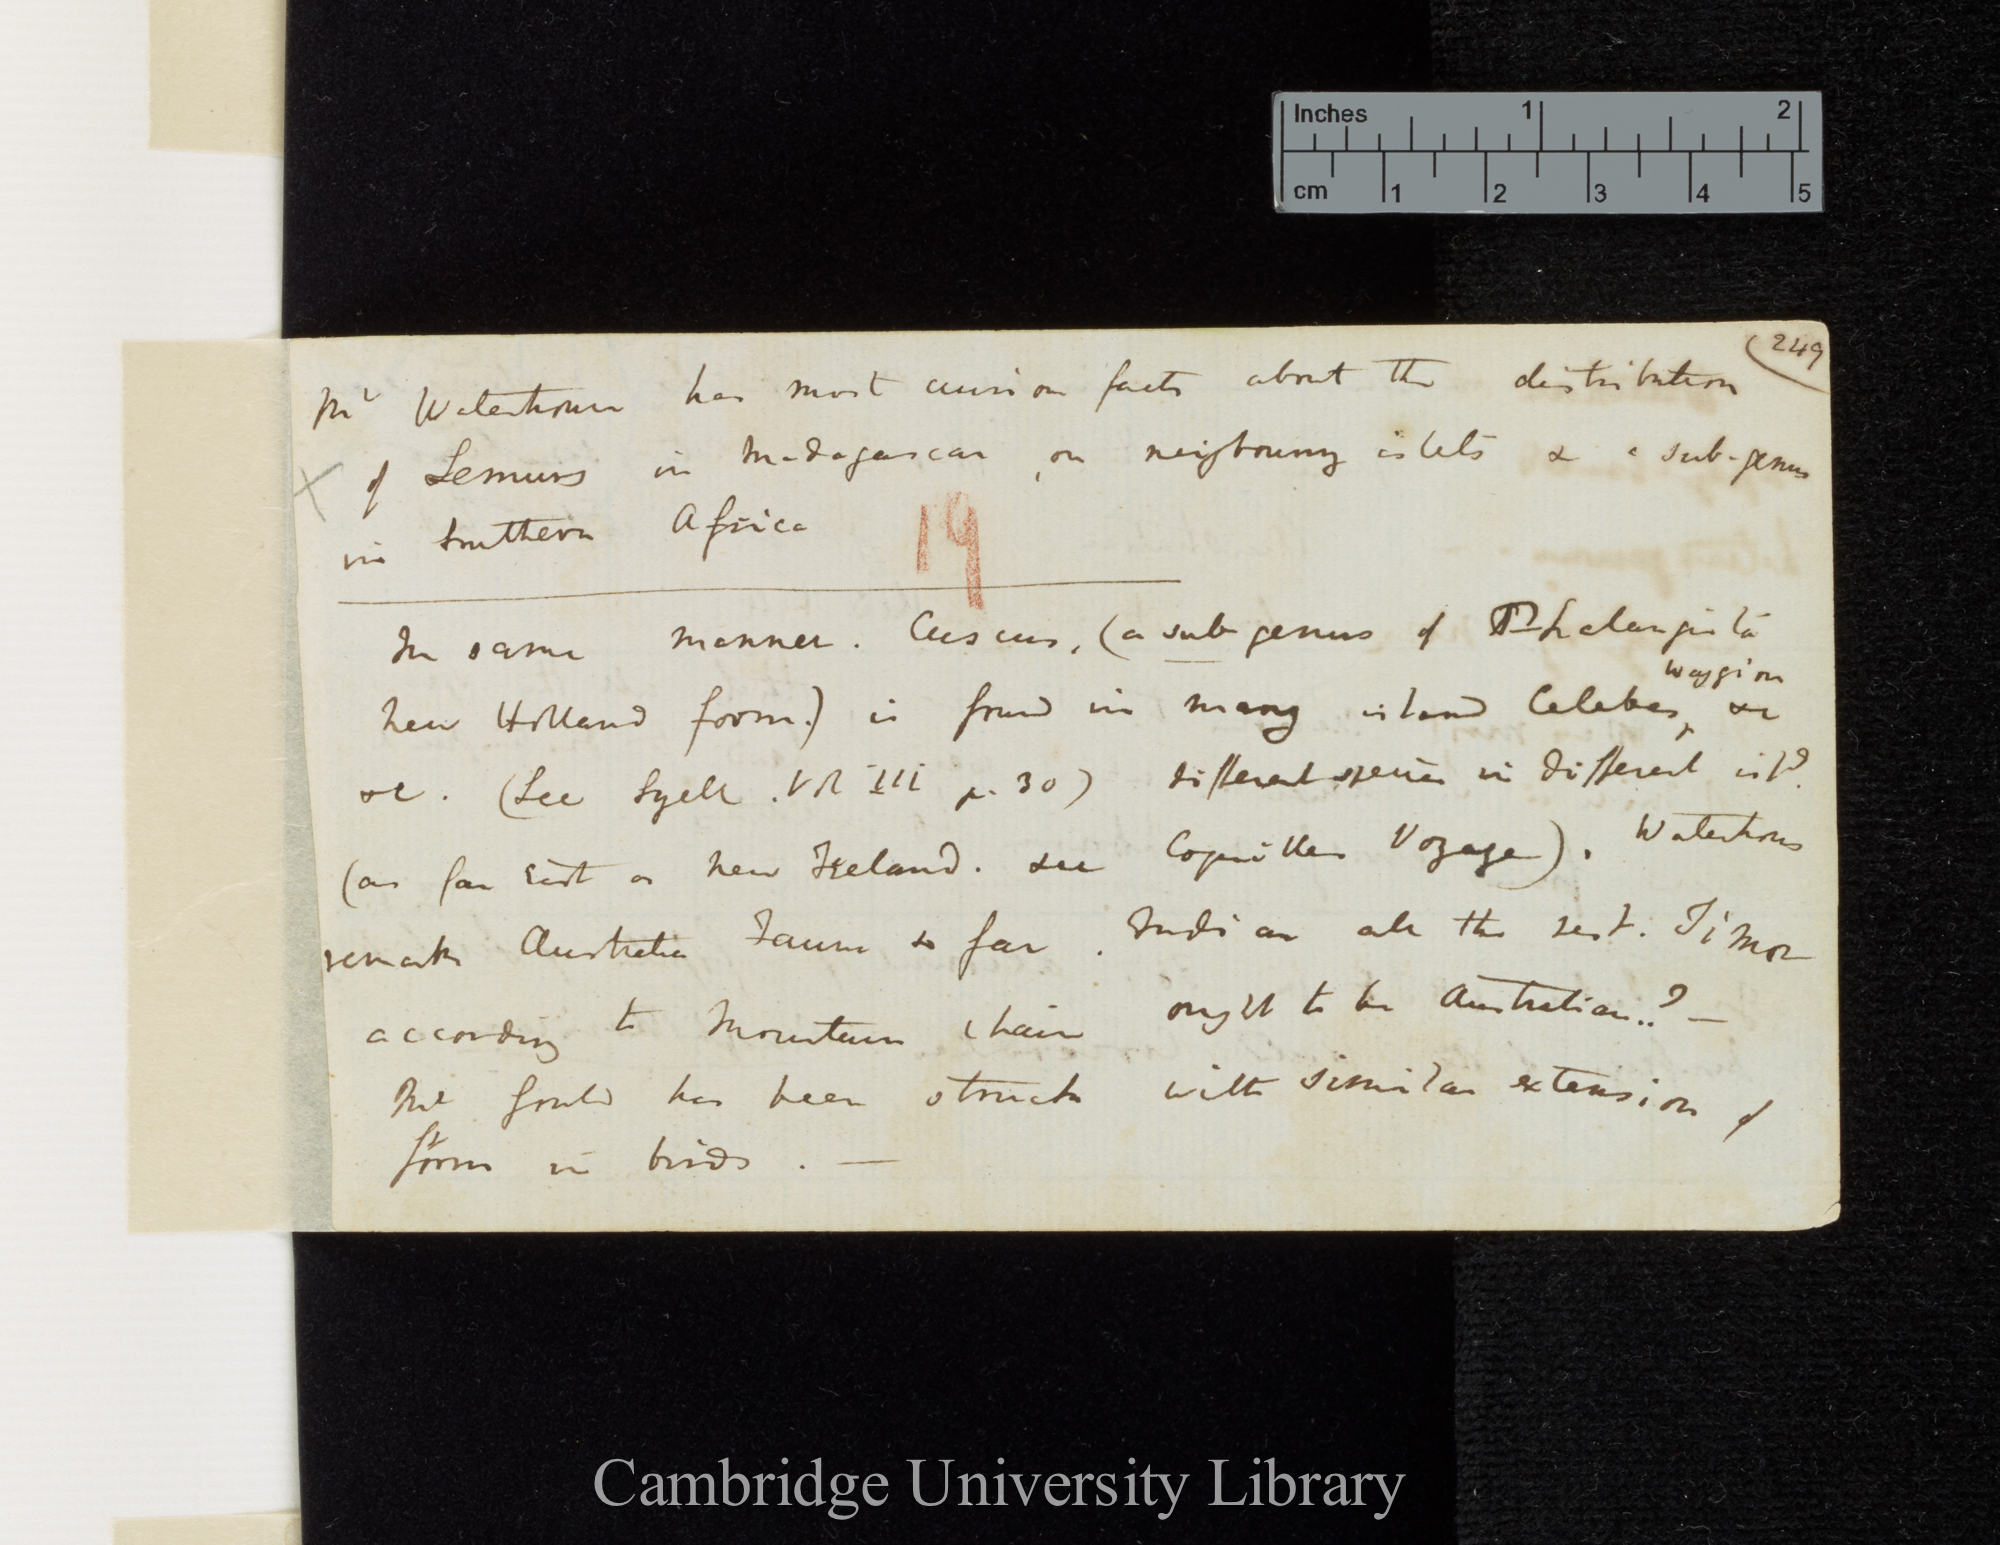 Inches 1 2
cm 1 2 3 4 5
249
Mr Waterhouse has most curious facts about the distribution
of Lemurs in Madagascar, on neighbouring islets & a sub-genus
in Southern Africa
19
In same manner. Cuscus, (a sub-genus of Phalangista
Waygiou
New Holland form.) is found in many island Celebes, &c
&c. (See Lyell. Vol III p. 30) different species in different isld?
(as far East as New Ireland. see Coquilles Voyage). Waterhouse
remarks Australia Fauna so far. Indian all the rest. Timor
according to Mountain chain ought to be Australian..? —
Mr Gould has been struck with similar extension of
form in birds. —
Cambridge University Library